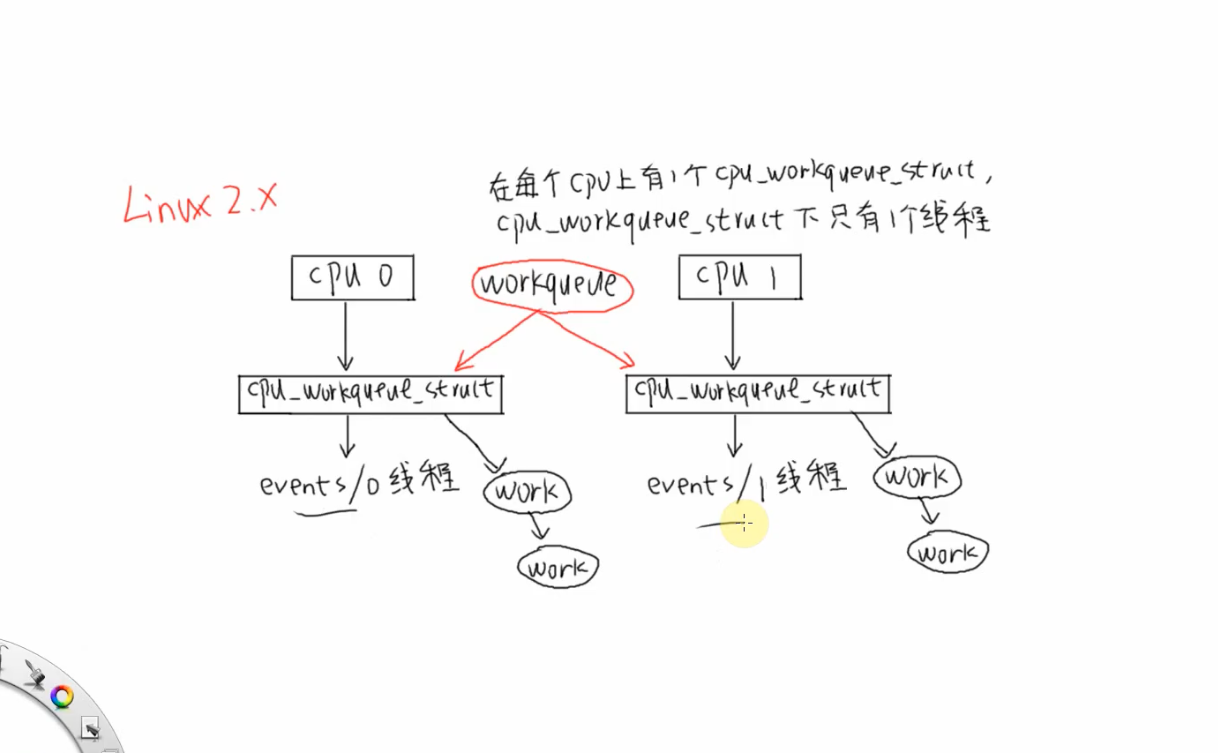 Linux 2.x
在每个CPU上有1个cpu_workqueue_struct,
cpu_workqueue_struct下只有1个线程
cpu 0
workqueue
cpu 1
cpu_workqueue_struct
cpu_workqueue_struct
events/0线程
work
events/1线程
work
work
work